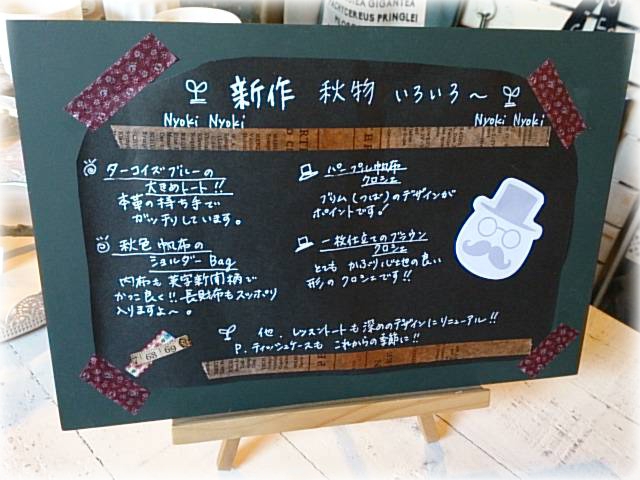 GIGANTEA
PACHYCEREUS PRINGLEI
新作 秋物 いろいろ〜
Nyoki Nyoki
Nyoki Nyoki
ターコイズブルーの
大きめトート!!
本革の持ち手で
ガッチリしています。
秋色帆布の
ショルダーBag
内布も英字新聞柄で
かっこ良く!!長財布もスッポリ
入りますよ〜。
パープル帆布
クロシェ
ブリム(つば)のデザインが
ポイントです!
一枚仕立てのブラウン
クロシェ
とても かぶり心地の良い
形のクロシェです!!
他、レッスントートも深めのデザインにリニューアル!!
P.ティッシュケースも これからの季節に!!
68 69